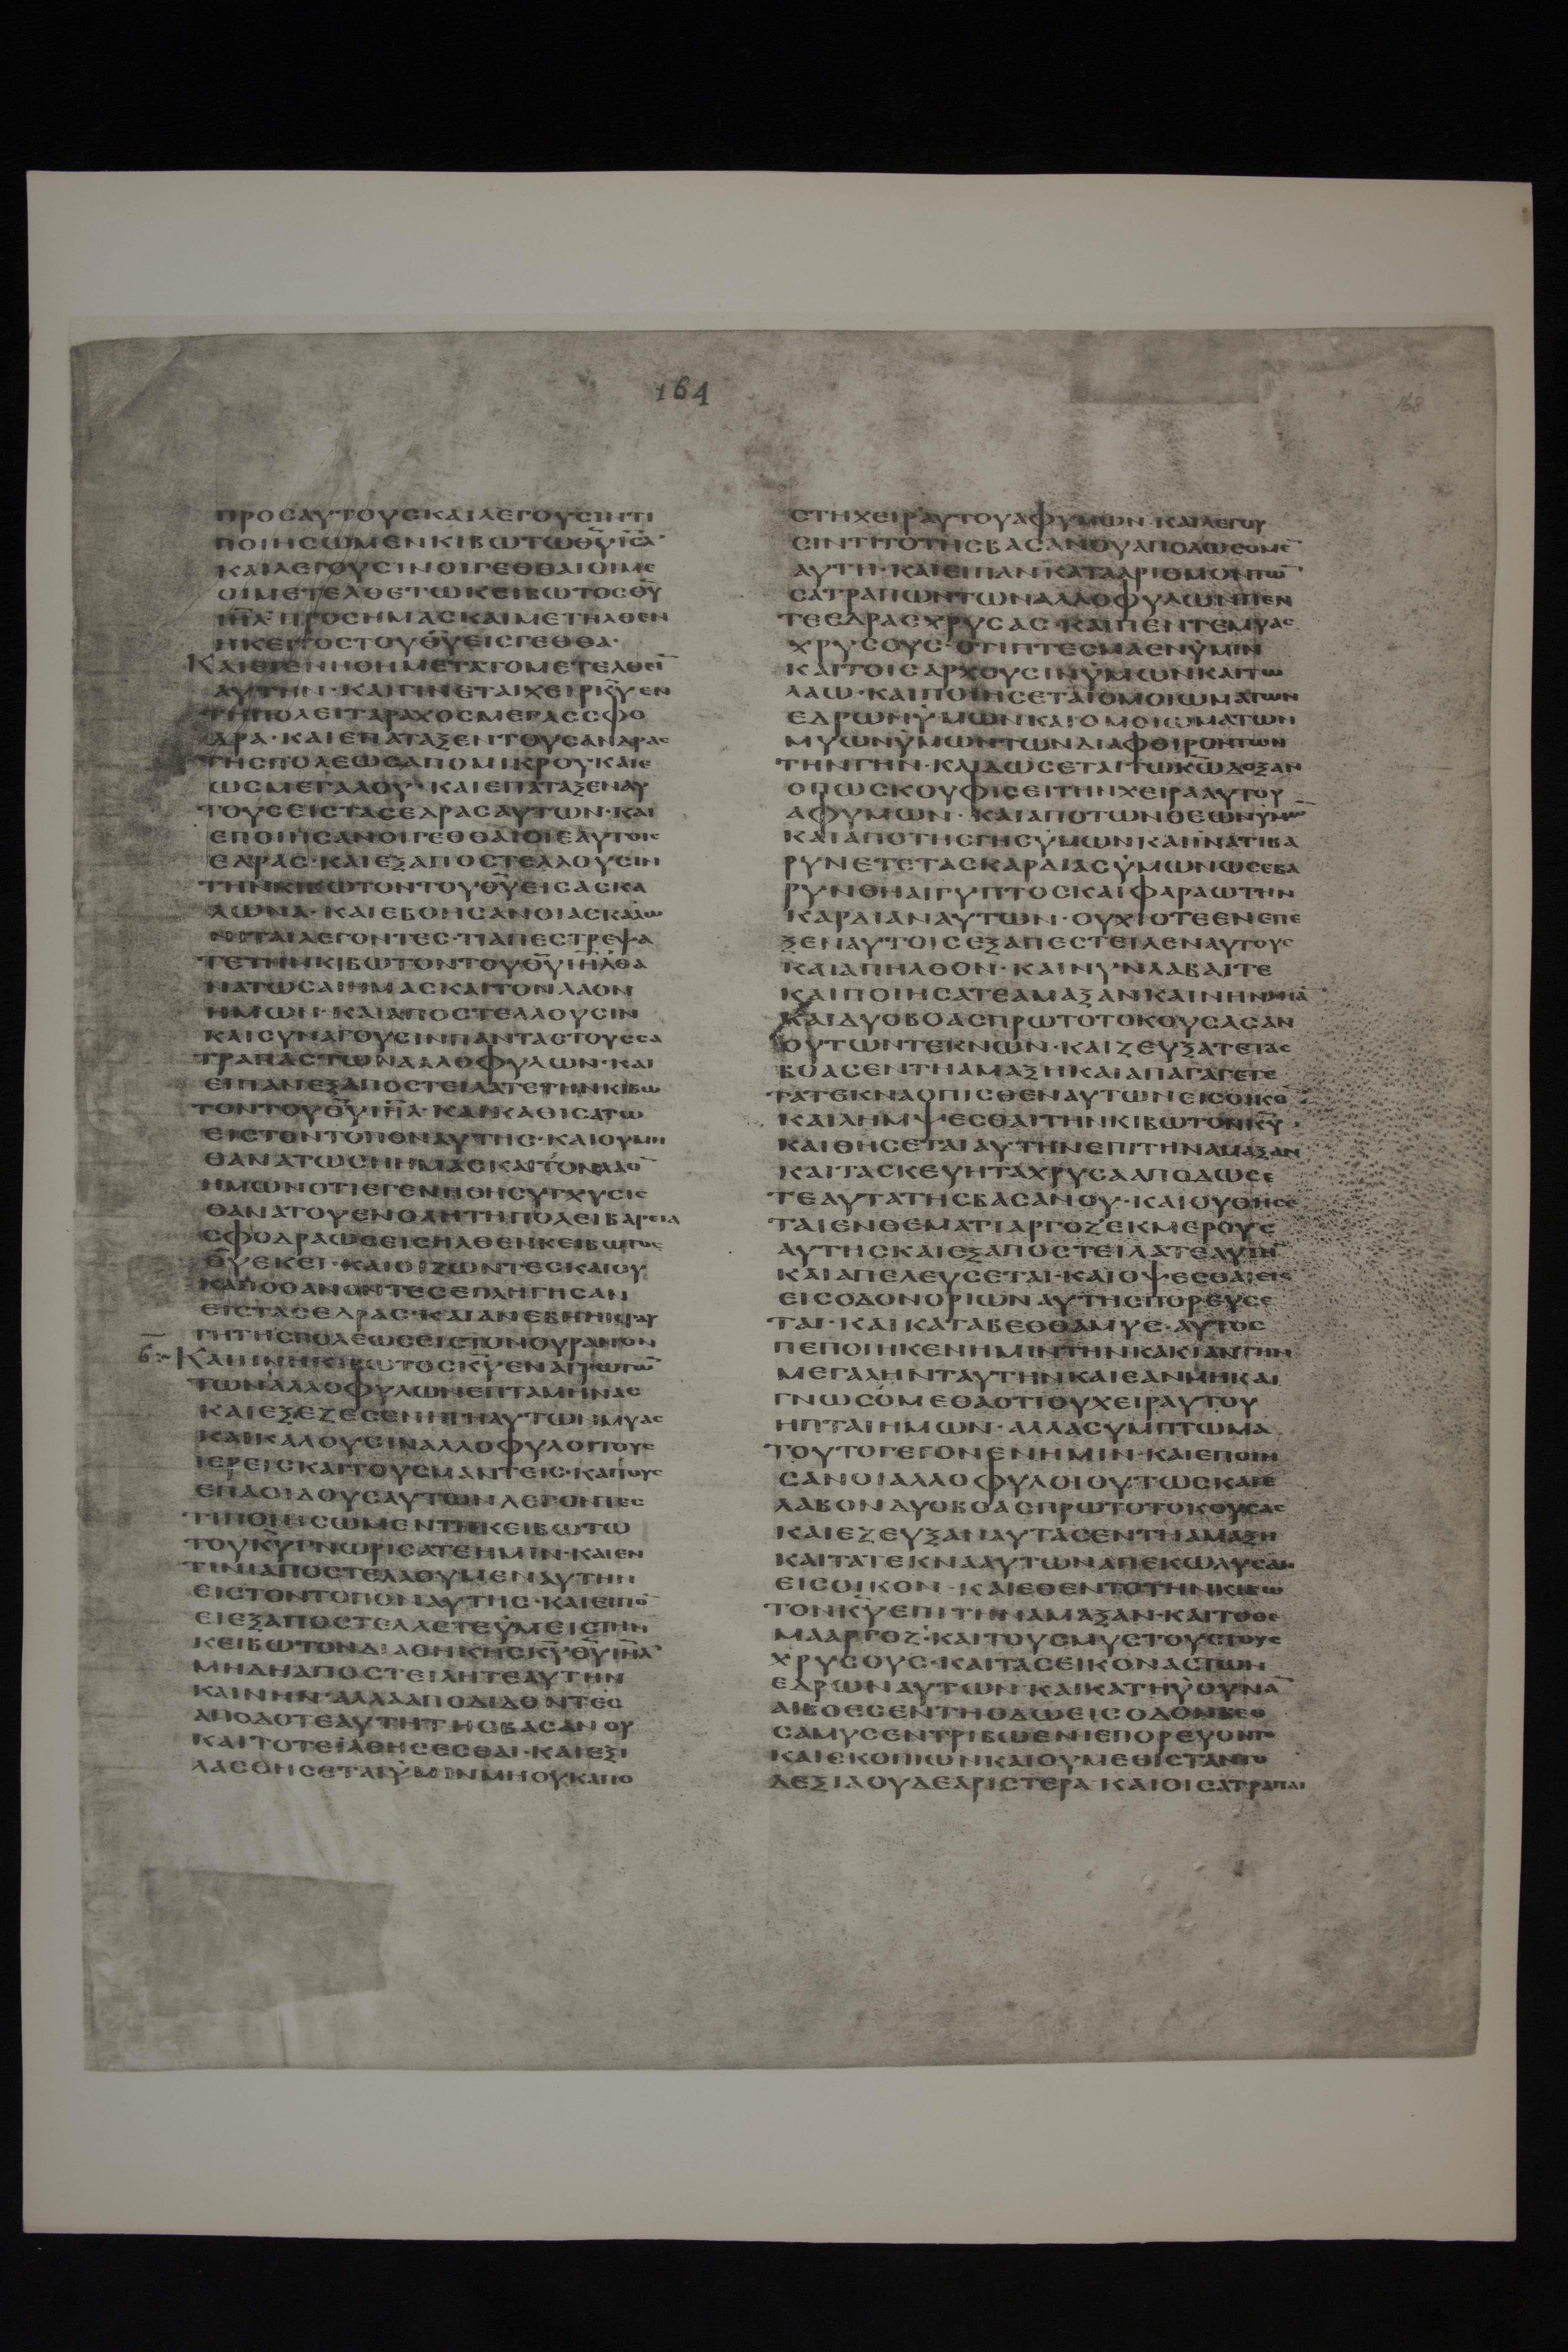 164
168
ΠΡΟCΑΥΤΟΥCΚΑΙΛΕΓΟΥCΙΝΤΙ
ΠΟΙΗCΩΜΕΝΚΙΒΩΤΩΘΥ
ΚΑΙΛΕΓΟΥCΙΝΟΙΓΕΘΘΑΙΟΙΜΕ
ΟΙΜΕΤΕΛΘΕΤΩΚΕΙΒΩΤΟCΘΥ
ΠΡΟCΗΜΑCΚΑΙΜΕΤΗΛΘΕΝ
ΤΟΥΘΥΕΙCΓΕΘΘΑ·
ΜΕΤΕΛΘΕΙ
ΑΥΤΗΝ·ΚΑΙΓΙΝΕΤΑΙΧΕΙΡΚΥΕΝ
ΤΗΠΟΛΕΙΤΑΡΑΧΟCΜΕΓΑCCΦΟ
ΔΡΑ·ΚΑΙΕΠΑΤΑΞΕΝΤΟΥCΑΝΔΡΑC
ΤΗCΠΟΛΕΩCΑΠΟΜΙΚΡΟΥΚΑΙΕ
ΩCΜΕΓΑΛΟΥ·ΚΑΙΕΠΑΤΑΞΕΝΑΥ
ΤΟΥCΕΙCΤΑCΕΔΡΑCΑΥΤΩΝ·ΚΑΙ
ΕΠΟΙΗCΑΝΟΙΓΕΘΘΑΙΟΙΕΑΥΤΟΙC
ΕΔΡΑC·ΚΑΙΕΞΑΠΟCΤΕΛΛΟΥCΙΝ
ΤΗΝΚΙΒΩΤΟΝΤΟΥΘΥΕΙCΑCΚΑ
ΛΩΝΑ·ΚΑΙΕΒΟΗCΑΝΟΙΑCΚΑΛΩ
ΝΕΙΤΑΙΛΕΓΟΝΤΕC·ΤΙΑΠΕCΤΡΕΨΑ
ΤΕΤΗΝΚΙΒΩΤΟΝΤΟΥΘΥΙΗΛΘΑ
ΝΑΤΩCΑΙΗΜΑCΚΑΙΤΟΝΛΑΟΝ
ΗΜΩΝ·ΚΑΙΑΠΟCΤΕΛΛΟΥCΙΝ
ΚΑΙCΥΝΑΓΟΥCΙΝΠΑΝΤΑCΤΟΥCCΑ
ΤΡΑΠΑCΤΩΝΑΛΛΟΦΥΛΩΝ·ΚΑΙ
ΕΙΠΑΝΕΞΑΠΟCΤΕΙΛΑΤΕΤΗΝΚΙΒΩ
ΤΟΝΤΟΥΘΥΙΗΛ·ΚΑΙΚΑΘΙCΑΤΩ
ΕΙCΤΟΝΤΟΠΟΝΑΥΤΗC·ΚΑΙΟΥΜΗ
ΘΑΝΑΤΩCΗΗΜΑCΚΑΙΤΟΝΛΑΟ
ΗΜΩΝΟΤΙΕΓΕΝΗΘΗCΥΓΧΥCΙC
ΘΑΝΑΤΟΥΕΝΟΛΗΤΗΠΟΛΕΙΒΑΡΕΙΑ
CΦΟΔΡΑΩCΕΙCΗΛΘΕΝΚΕΙΒΩΤΟC
ΘΥΕΚΕΙ·ΚΑΙΟΙΖΩΝΤΕCΚΑΙΟΥ
ΚΑΠΟΘΑΝΟΝΤΕCΕΠΛΗΓΗCΑΝ
ΕΙCΤΑCΕΔΡΑC·ΚΑΙΑΝΕΒΗΗΚΡΑΥ
ΓΗΤΗCΠΟΛΕΩCΕΙCΤΟΝΟΥΡΑΝΟΝ
ΚΑΙΗΝΗΚΙΒΩΤΟCΚΥΕΝΑΓΡΩΤΩ
ΤΩΝΑΛΛΟΦΥΛΩΝΕΠΤΑΜΗΝΑC
ΚΑΙΕΞΕΖΕCΕΝΗΓΗΑΥΤΩΝΜΥΑC
ΚΑΙΚΑΛΟΥCΙΝΑΛΛΟΦΥΛΟΙΤΟΥC
ΙΕΡΕΙCΚΑΙΤΟΥCΜΑΝΤΕΙC·ΚΑΙΤΟΥC
ΕΠΑΟΙΔΟΥCΑΥΤΩΝΛΕΓΟΝΤΕC
ΤΙΠΟΙΗCΩΜΕΝΤΗΚΕΙΒΩΤΩ
ΤΟΥΚΥΓΝΩΡΙCΑΤΕΗΜΙΝ·ΚΑΙΕΝ
ΤΙΝΙΑΠΟCΤΕΛΛΟΥΜΕΝΑΥΤΗΝ
ΕΙCΤΟΝΤΟΠΟΝΑΥΤΗC·ΚΑΙΕΙΠΟ
ΕΙΕΞΑΠΟCΤΕΛΛΕΤΕΥΜΕΙCΤΗΝ
ΚΕΙΒΩΤΟΝΔΙΑΘΗΚΗCΚΥΘΥΙΗΛ
ΜΗΔΗΑΠΟCΤΕΙΛΗΤΕΑΥΤΗΝ
ΚΑΙΝΗΝ·ΑΛΛΑΑΠΟΔΙΔΟΝΤΕC
ΑΠΟΔΟΤΕΑΥΤΗΤΗCΒΑCΑΝΟΥ
ΚΑΙΤΟΤΕΙΑΘΗCΕCΘΑΙ·ΚΑΙΕΞΙ
ΛΑCΘΗCΕΤΑΙΥΜΙΝΜΗΟΥΚΑΠΟ
CΤΗΧΕΙΡΑΥΤΟΥΑΦΥΜΩΝ·ΚΑΙΛΕΓΟΥ
CΙΝΤΙΤΟΤΗCΒΑCΑΝΟΥΑΠΟΔΩCΟΜΕ
ΑΥΤΗ·ΚΑΙΕΙΠΑΝΚΑΤΑΑΡΙΘΜΟΝΤΩ
CΑΤΡΑΠΩΝΤΩΝΑΛΛΟΦΥΛΩΝΠΕΝ
ΤΕΕΔΡΑCΧΡΥCΑC·ΚΑΙΠΕΝΤΕΜΥΑC
ΧΡΥCΟΥC·ΟΤΙΠΤΕCΜΑΕΝΥΜΙΝ
ΚΑΙΤΟΙCΑΡΧΟΥCΙΝΥΜΩΝΚΑΙΤΩ
ΛΑΩ·ΚΑΙΠΟΙΗCΕΤΑΙΟΜΟΙΩΜΑΤΩΝ
ΕΔΡΩΝΥΜΩΝΚΑΙΟΜΟΙΩΜΑΤΩΝ
ΜΥΩΝΥΜΩΝΤΩΝΔΙΑΦΘΙΡΟΝΤΩΝ
ΤΗΝΓΗΝ·ΚΑΙΔΩCΕΤΑΙΤΩΚΩΔΟΞΑΝ
ΟΠΩCΚΟΥΦΙCΕΙΤΗΝΧΕΙΡΑΑΥΤΟΥ
ΑΦΥΜΩΝ·ΚΑΙΑΠΟΤΩΝΘΕΩΝΥΜΩ
ΚΑΙΑΠΟΤΗCΓΗCΥΜΩΝΚΑΙΙΝΑΤΙΒΑ
ΡΥΝΕΤΕΤΑCΚΑΡΔΙΑCΥΜΩΝΩCΕΒΑ
ΡΥΝΘΗΑΙΓΥΠΤΟCΚΑΙΦΑΡΑΩΤΗΝ
ΚΑΡΔΙΑΝΑΥΤΩΝ·ΟΥΧΙΟΤΕΕΝΕΠΕ
ΞΕΝΑΥΤΟΙCΕΞΑΠΕCΤΕΙΛΕΝΑΥΤΟΥC
ΚΑΙΑΠΗΛΘΟΝ·ΚΑΙΝΥΝΛΑΒΑΙΤΕ
ΚΑΙΠΟΙΗCΑΤΕΑΜΑΞΑΝΚΑΙΝΗΝΜΙΑ
ΚΑΙΔΥΟΒΟΑCΠΡΩΤΟΤΟΚΟΥCΑCΑΝ
ΟΥΤΩΝΤΕΚΝΩΝ·ΚΑΙΖΕΥΞΑΤΕΤΑC
ΒΟΑCΕΝΤΗΑΜΑΞΗΚΑΙΑΠΑΓΑΓΕΤΕ
ΤΑΤΕΚΝΑΟΠΙCΘΕΝΑΥΤΩΝΕΙCΟΙΚΟ
ΚΑΙΛΗΜΨΕCΘΑΙΤΗΝΚΙΒΩΤΟΝΚΥ·
ΚΑΙΘΗCΕΤΑΙΑΥΤΗΝΕΠΙΤΗΝΑΜΑΞΑΝ
ΚΑΙΤΑCΚΕΥΗΤΑΧΡΥCΑΑΠΟΔΩCΕ
ΤΕΑΥΤΑΤΗCΒΑCΑΝΟΥ·ΚΑΙΟΥΘΗCΕ
ΤΑΙΕΝΘΕΜΑΤΙΑΡΓΟΖΕΚΜΕΡΟΥC
ΑΥΤΗCΚΑΙΕΞΑΠΟCΤΕΙΛΑΤΕΑΥΤΗ
ΚΑΙΑΠΕΛΕΥCΕΤΑΙ·ΚΑΙΟΨΕCΘΑΙΕΙC
ΕΙCΟΔΟΝΟΡΙΩΝΑΥΤΗCΠΟΡΕΥCΕ
ΤΑΙ·ΚΑΙΚΑΤΑΒΕΘΘΑΜΥC·ΑΥΤΟC
ΠΕΠΟΙΗΚΕΝΗΜΙΝΤΗΝΚΑΚΙΑΝΤΗΝ
ΜΕΓΑΛΗΝΤΑΥΤΗΝΚΑΙΕΑΝΜΗΚΑΙ
ΓΝΩCΟΜΕΘΑΟΤΙΟΥΧΕΙΡΑΥΤΟΥ
ΗΠΤΑΙΗΜΩΝ·ΑΛΛΑCΥΜΠΤΩΜΑ
ΤΟΥΤΟΓΕΓΟΝΕΝΗΜΙΝ·ΚΑΙΕΠΟΙΗ
CΑΝΟΙΑΛΛΟΦΥΛΟΙΟΥΤΩCΚΑΙΕ
ΛΑΒΟΝΔΥΟΒΟΑCΠΡΩΤΟΤΟΚΟΥCΑC
ΚΑΙΕΖΕΥΞΑΝΑΥΤΑCΕΝΤΗΑΜΑΞΗ
ΚΑΙΤΑΤΕΚΝΑΑΥΤΩΝΑΠΕΚΩΛΥCΑΝ
ΕΙCΟΙΚΟΝ·ΚΑΙΕΘΕΝΤΟΤΗΝΚΙΒΩ
ΤΟΝΚΥΕΠΙΤΗΝΑΜΑΞΑΝ·ΚΑΙΤΟΘΕ
ΜΑΑΡΓΟΖ·ΚΑΙΤΟΥCΜΥCΤΟΥCΤΟΥC
ΧΡΥCΟΥC·ΚΑΙΤΑCΕΙΚΟΝΑCΤΩΝ
ΕΔΡΩΝΑΥΤΩΝ·ΚΑΙΚΑΤΗΥΘΥΝΑ
ΑΙΒΟΕCΕΝΤΗΟΔΩΕΙCΟΔΟΝΒΕΘ
CΑΜΥCΕΝΤΡΙΒΩΕΝΙΕΠΟΡΕΥΟΝΤΟ
ΚΑΙΕΚΟΠΙΩΝΚΑΙΟΥΜΕΘΙCΤΑΝΤΟ
ΔΕΞΙΑΟΥΔΕΑΡΙCΤΕΡΑ·ΚΑΙΟΙCΑΤΡΑΠΑΙ